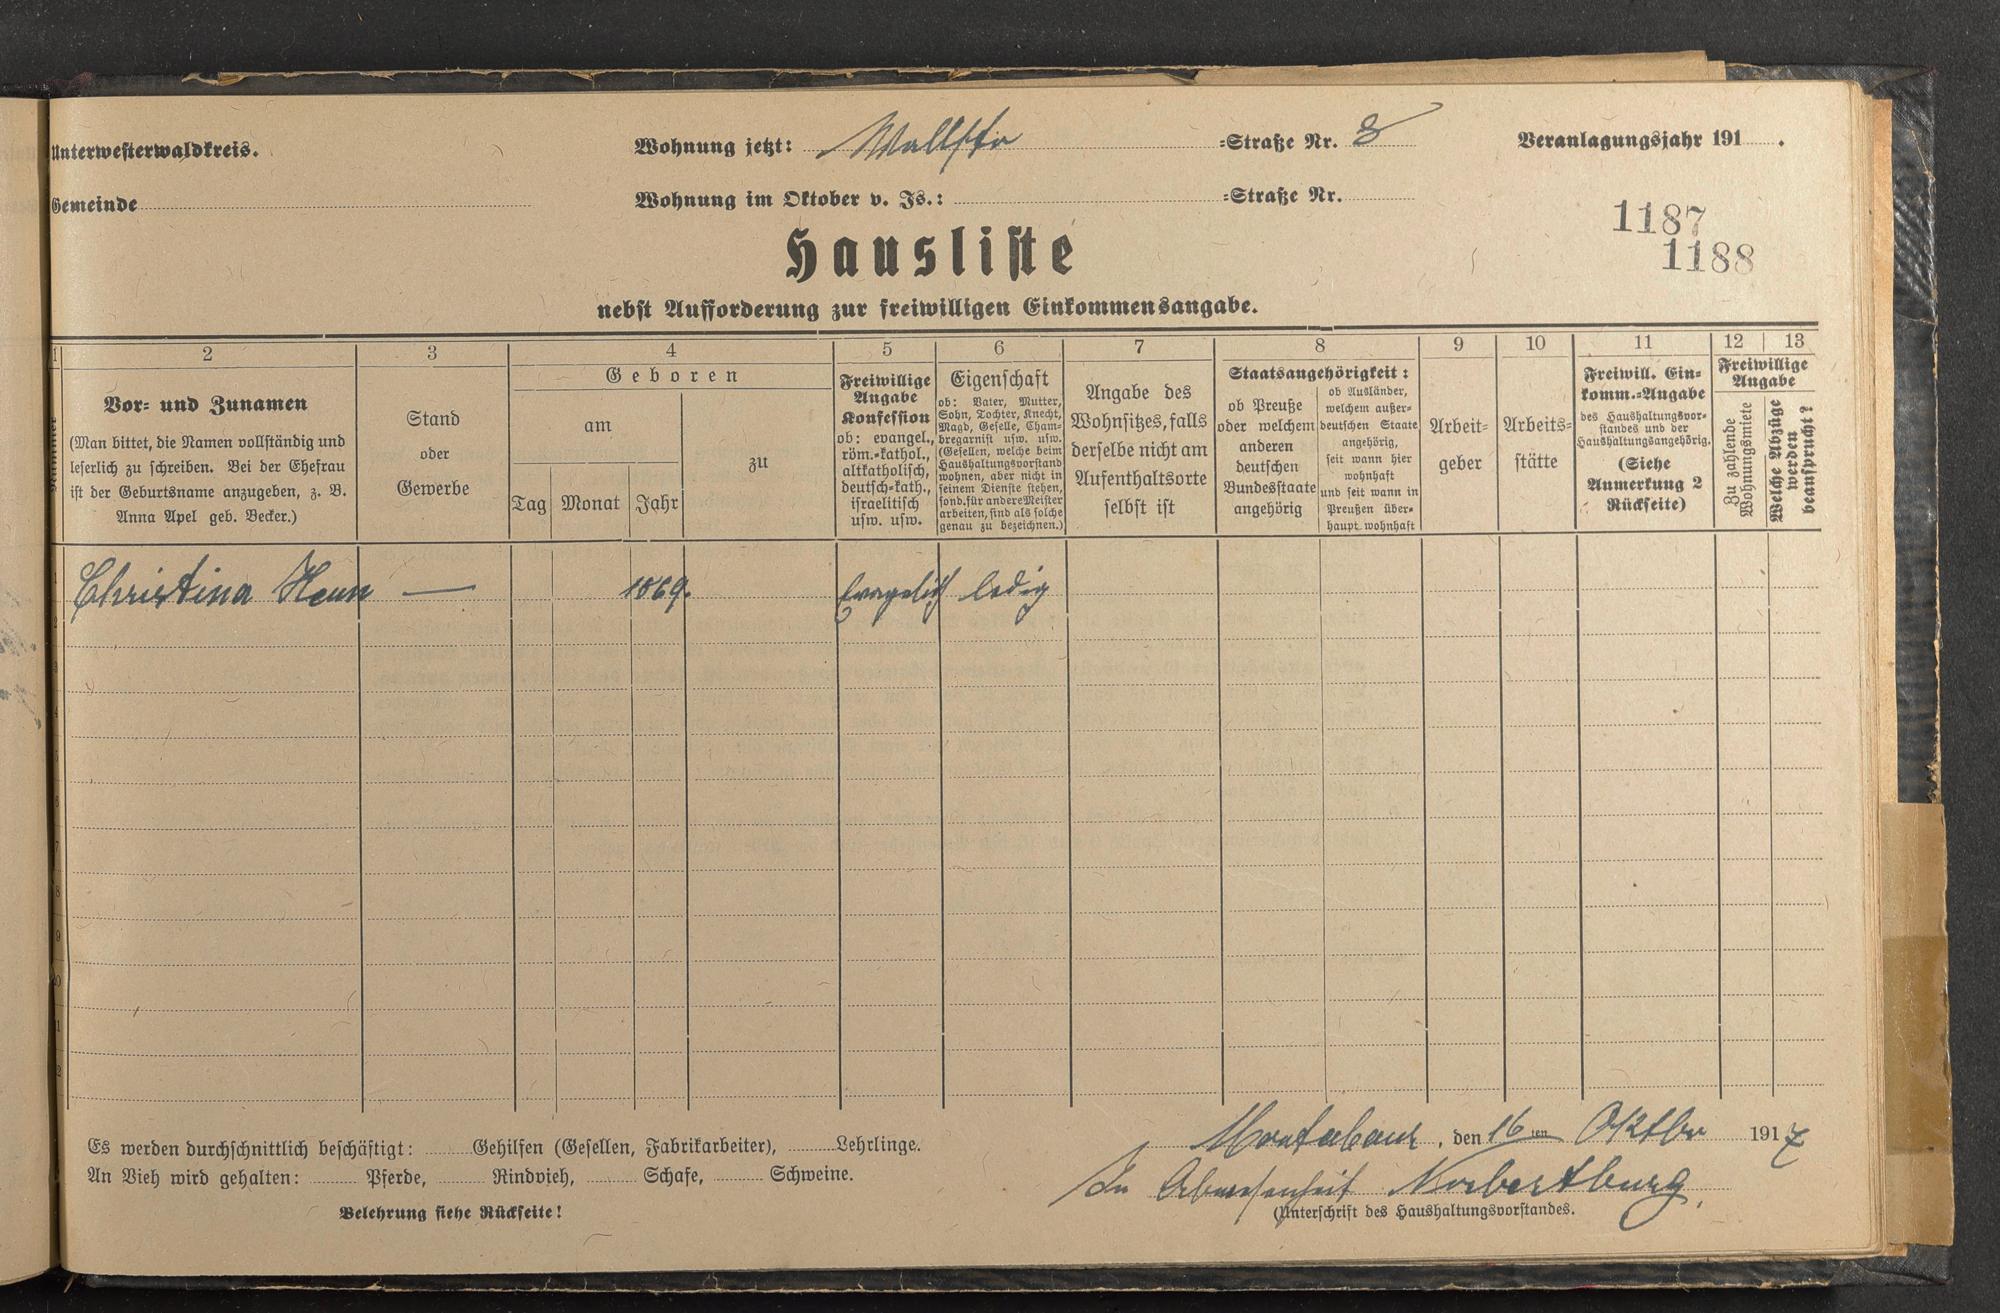 Unterwesterwaldkreis.
Wohnung jetzt: Wallstr -Straße Nr. 8
Veranlagungsjahr 191 .
Gemeinde
Wohnung im Oktober v. Js.: -Straße Nr.
1187
1188
Hausliste
nebst Aufforderung zur freiwilligen Einkommensangabe.
1 2 3 4 5 6 7 8 9 10 11 12 13
Nummer
Vor- und Zunamen
(Man bittet, die Namen vollständig und
leserlich zu schreiben. Bei der Ehefrau
ist der Geburtsname anzugeben, z. B.
Anna Apel geb. Becker.)
Stand
oder
Gewerbe
Geboren
am
Tag Monat Jahr
zu
Freiwillige
Angabe
Konfession
ob: evangel.,
röm.-kathol.,
altkatholisch,
deutsch-kath.,
israelitisch
usw. usw.
Eigenschaft
ob: Vater, Mutter,
Sohn, Tochter, Knecht,
Magd, Geselle, Cham-
bregarnist usw. usw.
(Gesellen, welche beim
Haushaltungsvorstand
wohnen, aber nicht in
seinem Dienste stehen,
sond. für andere Meister
arbeiten, sind als solche
genau zu bezeichnen.)
Angabe des
Wohnsitzes, falls
derselbe nicht am
Aufenthaltsorte
selbst ist
Staatsangehörigkeit:
ob Preuße
oder welchem
anderen
deutschen
Bundesstaate
angehörig
ob Ausländer,
welchem außer-
deutschen Staate
angehörig,
seit wann hier
wohnhaft
und seit wann in
Preußen über-
haupt wohnhaft
Arbeit-
geber
Arbeits-
stätte
Freiwill. Ein-
komm.-Angabe
des Haushaltungsvor-
standes und der
Haushaltungsangehörig.
(Siehe
Anmerkung 2
Rückseite)
Freiwillige
Angabe
Zu zahlende
Wohnungsmiete
Welche Abzüge
werden
beansprucht?
1 Christina Henn — 1869. Evangelisch ledig
2
3
4
5
6
7
8
9
10
11
12
Es werden durchschnittlich beschäftigt: Gehilfen (Gesellen, Fabrikarbeiter), Lehrlinge.
An Vieh wird gehalten: Pferde, Rindvieh, Schafe, Schweine.
Belehrung siehe Rückseite!
Montabaur, den 16 ten Oktbr 1917
In Abwesenheit Norbertburg.
(Unterschrift des Haushaltungsvorstandes.